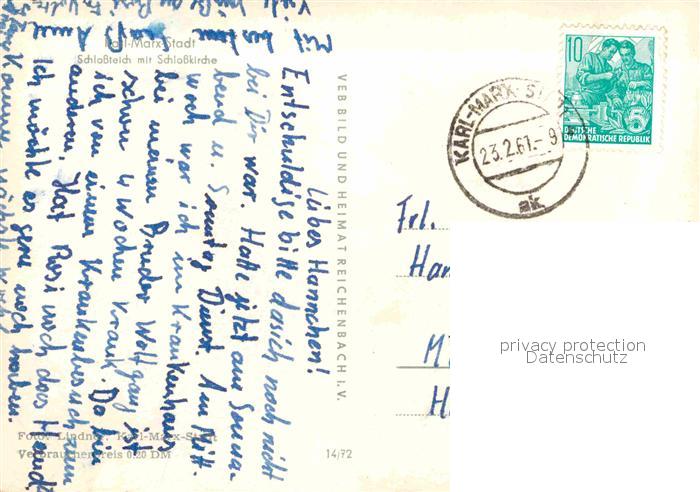 Karl-Marx-Stadt
Schloßteich mit Schloßkirche
Liebes Hannchen!
Entschuldige bitte das ich noch nicht
bei Dir war. Hatte jetzt am Sonna-
bend u. Sonntag Dienst. Am Mitt-
woch war ich im Krankenhaus
bei meinen Bruder Wolfgang ist
schon 4 Wochen krank. Da bin
ich von einen Krankenbesuch zum
anderen. Hat Rosi noch das
Ich möchte es gern noch haben.
Komme
Mit besten
Foto: Lindner, Karl-Marx-Stadt
Verbraucherpreis 0.20 DM
14/72
VEB BILD UND HEIMAT REICHENBACH I. V.
KARL-MARX-ST
23.2.61.-9
ak
10
5
DEUTSCHE
DEMOKRATISCHE REPUBLIK
Frl.
privacy protection
Datenschutz